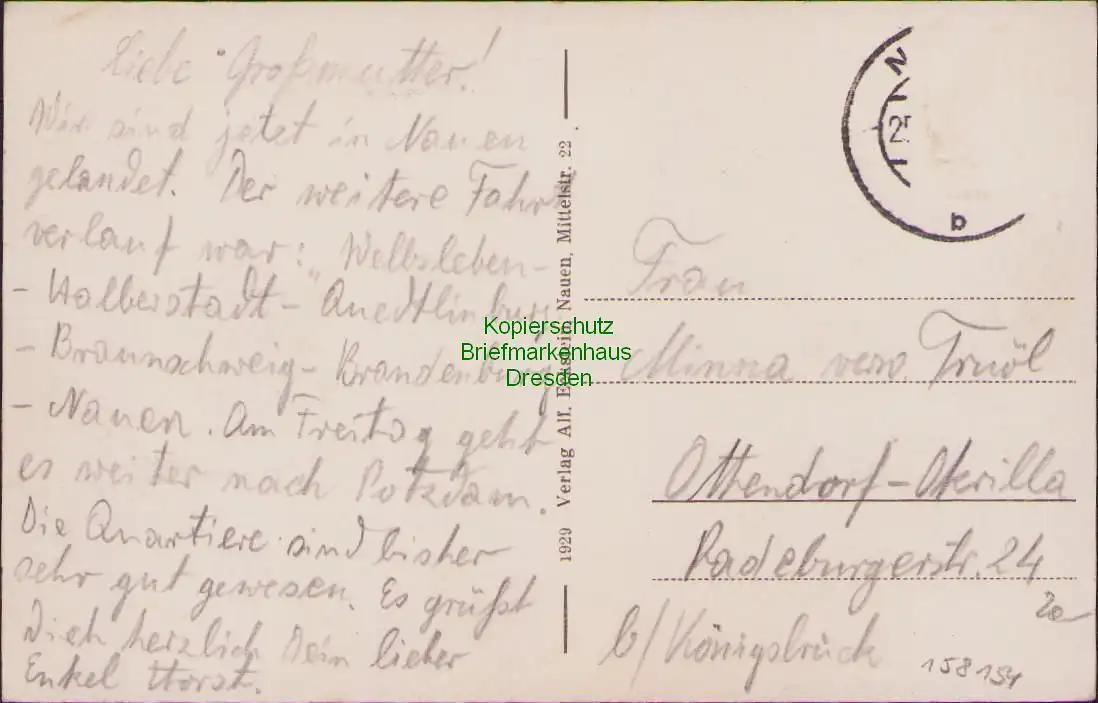 Liebe Großmutter!
Wir sind jetzt in Nauen
gelandet. Der weitere Fahrt
verlauf war: Welbsleben-
- Halberstadt - Quedtlinburg
- Braunschweig - Brandenburg
- Nauen. Am Freitag geht
es weiter nach Potzdam.
Die Quartiere sind bisher
sehr gut gewesen. Es grüßt
Dich herzlich Dein lieber
Enkel Horst.
1929 Verlag Alf. Eckstein, Nauen, Mittelstr. 22
Kopierschutz
Briefmarkenhaus
Dresden
N
25
b
Frau
Minna verw.
Ottendorf-Okrilla
Radeburgerstr. 24
b/ Königsbrück
158154